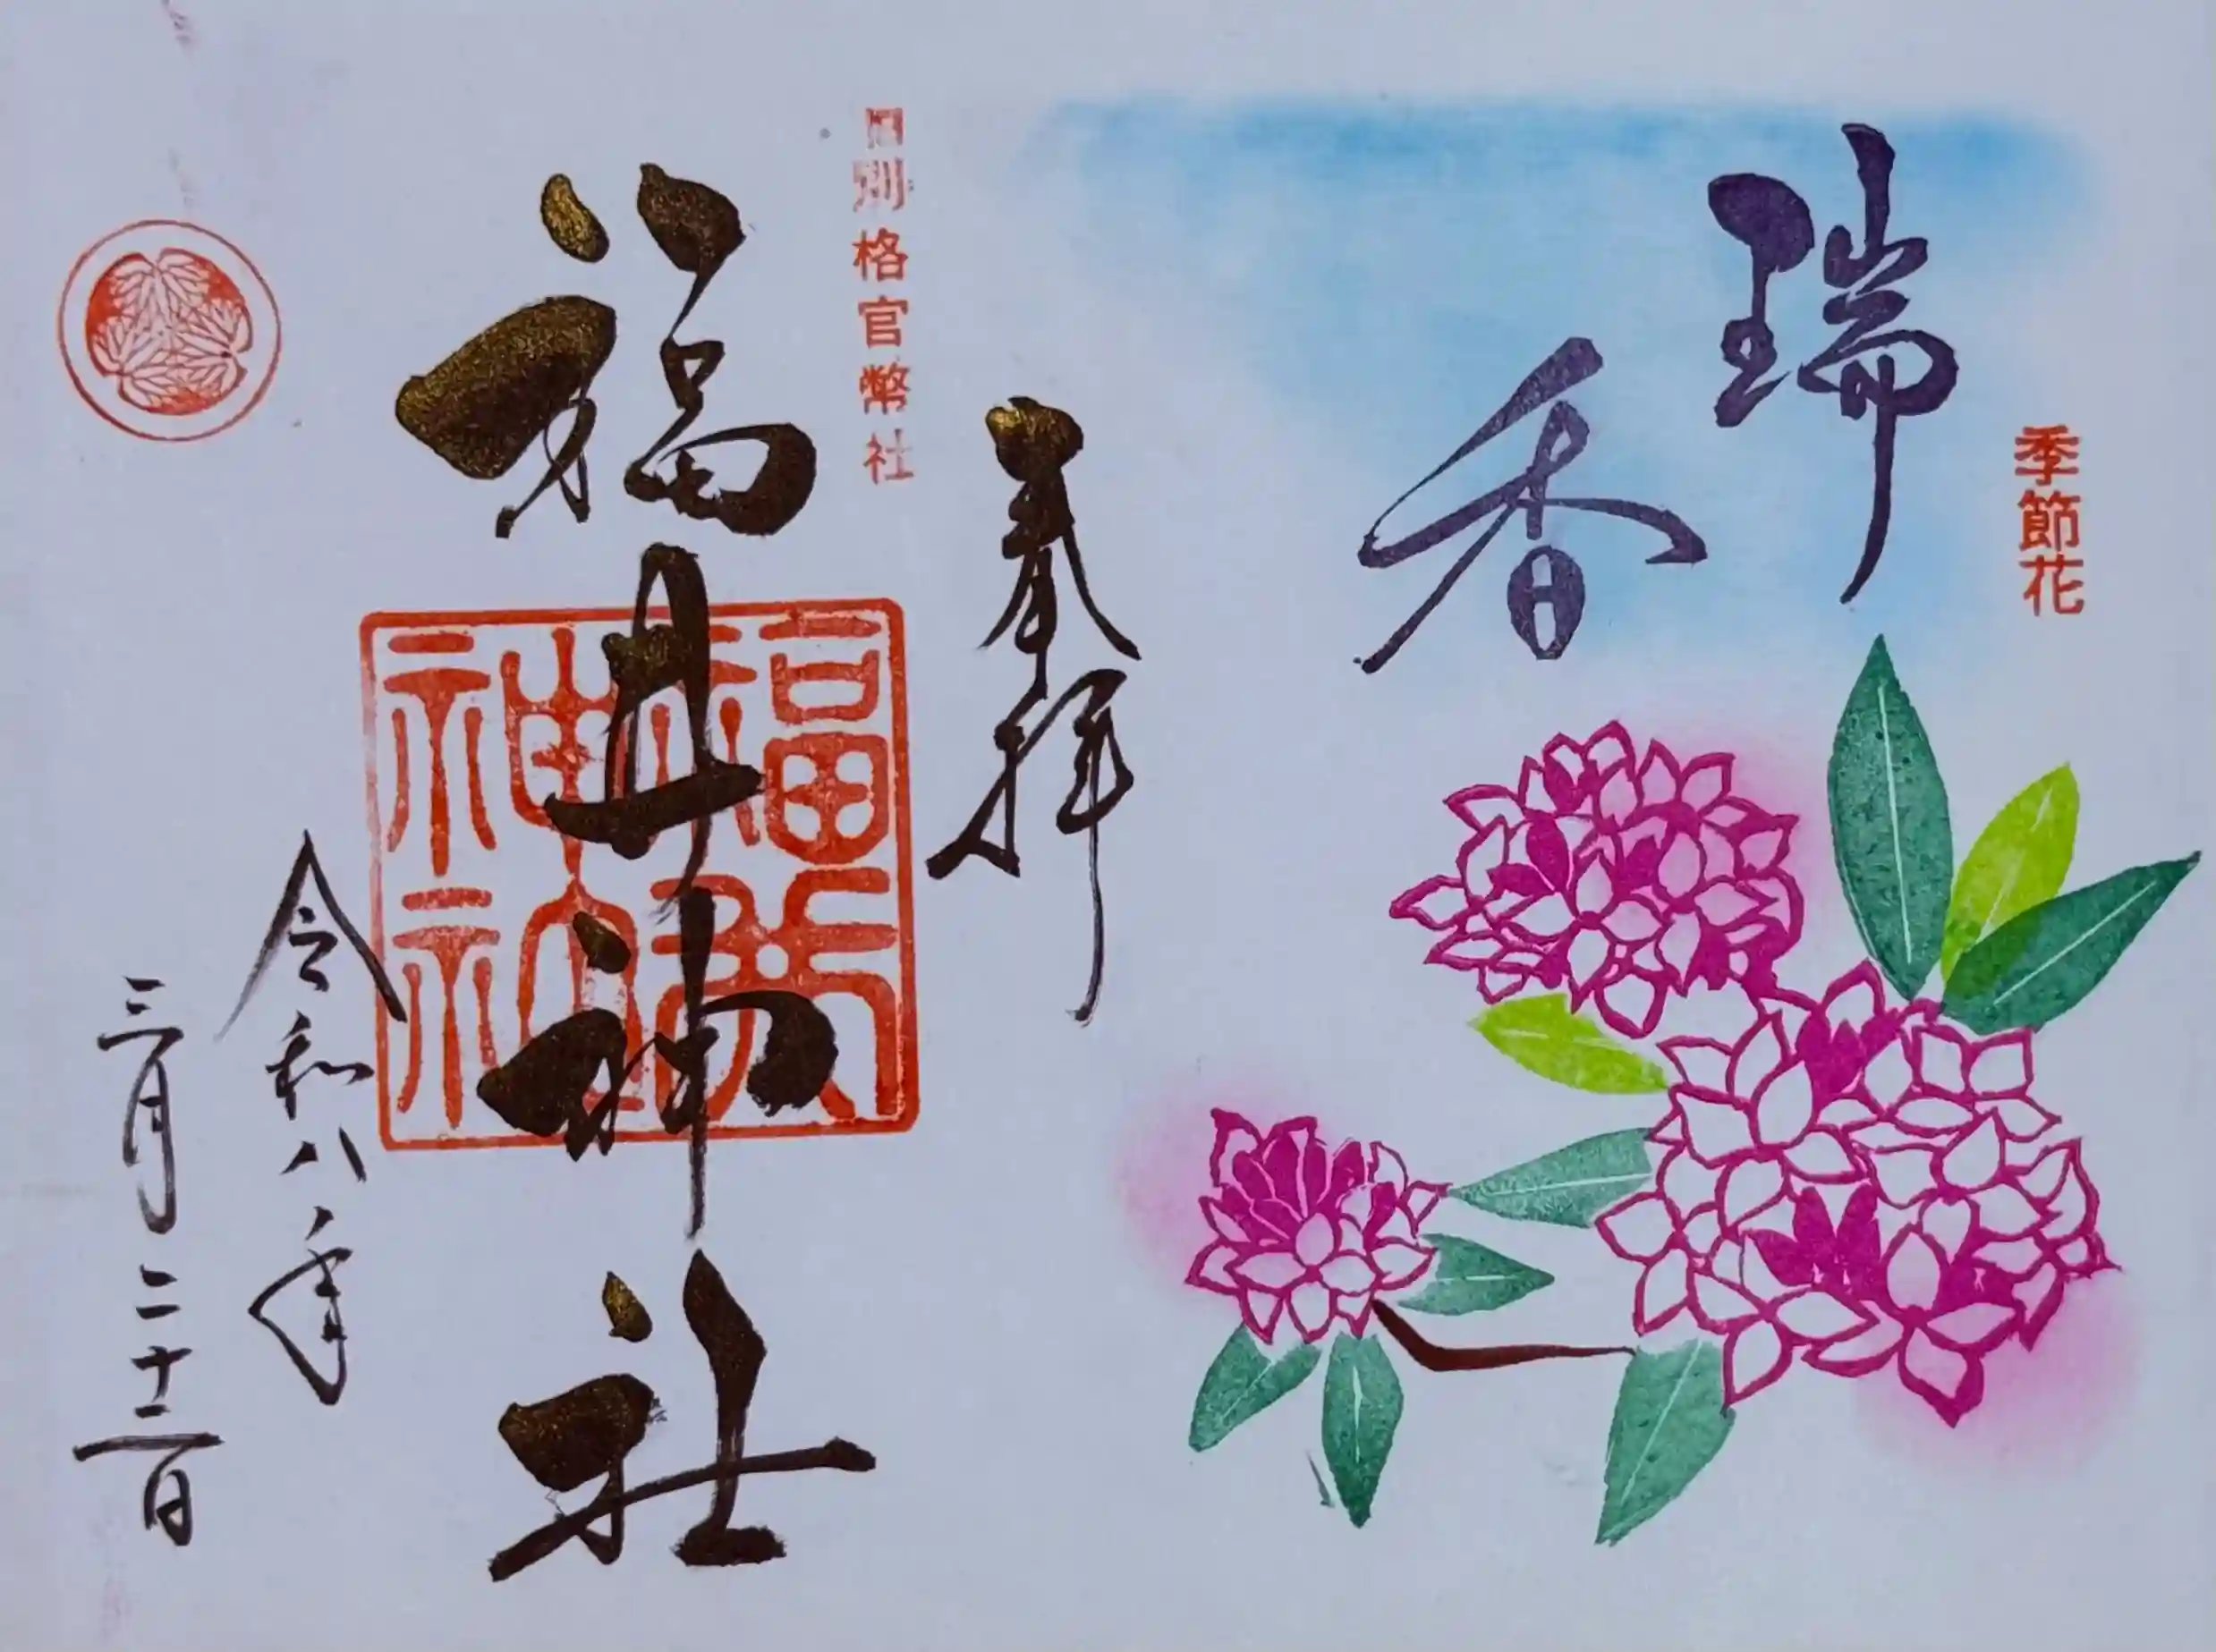 季節花
瑞香
奉拝
旧別格官幣社
福井神社
令和八年
三月二十二日